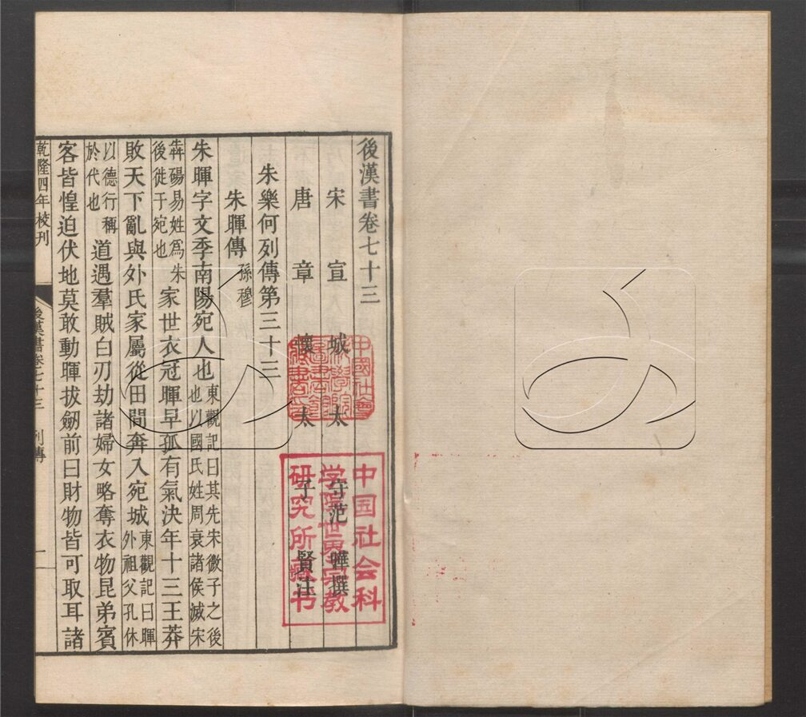 後漢書卷七十三
宋宣城太守范曄撰
唐章懷太子賢注
朱樂何列傳第三十三
朱暉傳孫穆
朱暉字文季南陽宛人也東觀記曰其先宋微子之後也以國氏姓周衰諸侯滅宋
犇碭易姓爲朱後徙于宛也家世衣冠暉早孤有氣決年十三王莽
敗天下亂與外氏家屬從田間奔入宛城東觀記曰暉外祖父孔休
以德行稱於代也道遇羣賊白刃劫諸婦女略奪衣物昆弟賓
客皆惶迫伏地莫敢動暉拔劒前曰財物皆可取耳諸
乾隆四年校刊
後漢書卷七十三 列傳 一
中國社會
科學院
圖書館
藏書
中国社会科
学院世界宗教
研究所藏书